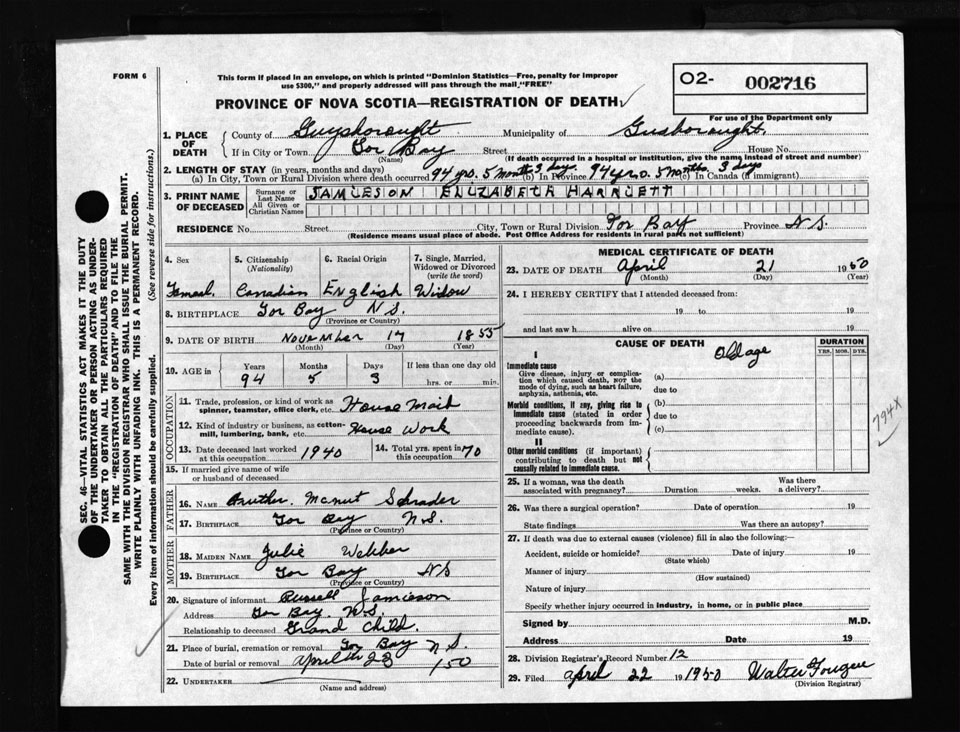 FORM 6
This form if placed in an envelope, on which is printed "Dominion Statistics—Free, penalty for improper
use $300," and properly addressed will pass through the mail "FREE"
PROVINCE OF NOVA SCOTIA—REGISTRATION OF DEATH
O2- 002716
For use of the Department only
SEC. 46—VITAL STATISTICS ACT MAKES IT THE DUTY
OF THE UNDERTAKER OR PERSON ACTING AS UNDER-
TAKER TO OBTAIN ALL THE PARTICULARS REQUIRED
IN THE "REGISTRATION OF DEATH" AND TO FILE THE
SAME WITH THE DIVISION REGISTRAR WHO SHALL ISSUE THE BURIAL PERMIT.
WRITE PLAINLY WITH UNFADING INK. THIS IS A PERMANENT RECORD.
Every item of information should be carefully supplied. (See reverse side for instructions.)
1. PLACE OF DEATH
County of Guysborought Municipality of Gusborought.
If in City or Town Tor Bay Street House No.
(Name) (If death occurred in a hospital or institution, give the name instead of street and number)
2. LENGTH OF STAY (in years, months and days)
(a) In City, Town or Rural Division where death occurred 94 yrs. 5 months 3 days (b) In Province 94 yrs. 5 months 3 days (c) In Canada (if immigrant)
3. PRINT NAME OF DECEASED
Surname or Last Name JAMIESON ELIZABETH HARRIETT
All Given or Christian Names
RESIDENCE No. Street City, Town or Rural Division Tor Bay Province N.S.
(Residence means usual place of abode. Post Office Address for residents in rural parts not sufficient)
4. Sex 5. Citizenship (Nationality) 6. Racial Origin 7. Single, Married, Widowed or Divorced (write the word)
Femail. Canadian English Widow
8. BIRTHPLACE Tor Bay N.S.
(Province or Country)
9. DATE OF BIRTH November 17 1855
(Month) (Day) (Year)
10. AGE in Years Months Days If less than one day old
94 5 3 hrs. or min.
OCCUPATION
11. Trade, profession, or kind of work as spinner, teamster, office clerk, etc. House Maid
12. Kind of industry or business, as cotton-mill, lumbering, bank, etc. House Work
13. Date deceased last worked at this occupation 1940 14. Total yrs. spent in this occupation 70
15. If married give name of wife or husband of deceased
FATHER
16. NAME Manut Schrader
17. BIRTHPLACE Tor Bay N.S.
(Province or Country)
MOTHER
18. MAIDEN NAME Julie Webber
19. BIRTHPLACE Tor Bay NS
(Province or Country)
20. Signature of informant Russell Jamieson
Address Tor Bay N.S.
Relationship to deceased Grand Child.
21. Place of burial, cremation or removal Tor Bay N.S.
Date of burial or removal April 23 150
22. UNDERTAKER
(Name and address)
MEDICAL CERTIFICATE OF DEATH
23. DATE OF DEATH April 21 1950
(Month) (Day) (Year)
24. I HEREBY CERTIFY that I attended deceased from:
19 to 19
and last saw h alive on 19
CAUSE OF DEATH DURATION
YRS. MOS. DYS.
Old age
I
Immediate cause
Give disease, injury or complication which caused death, NOT the mode of dying, such as heart failure, asphyxia, asthenia, etc.
(a)
due to
Morbid conditions, if any, giving rise to immediate cause (stated in order proceeding backwards from immediate cause).
(b)
due to
(c)
II
Other morbid conditions (if important) contributing to death but not causally related to immediate cause.
794X
25. If a woman, was the death associated with pregnancy? Duration weeks. Was there a delivery?
26. Was there a surgical operation? Date of operation 19
State findings Was there an autopsy?
27. If death was due to external causes (violence) fill in also the following:—
Accident, suicide or homicide? Date of injury 19
(State which)
Manner of injury
(How sustained)
Nature of injury
Specify whether injury occurred in industry, in home, or in public place
Signed by M.D.
Address Date 19
28. Division Registrar's Record Number 12
29. Filed April 22 191950 Walter
(Division Registrar)